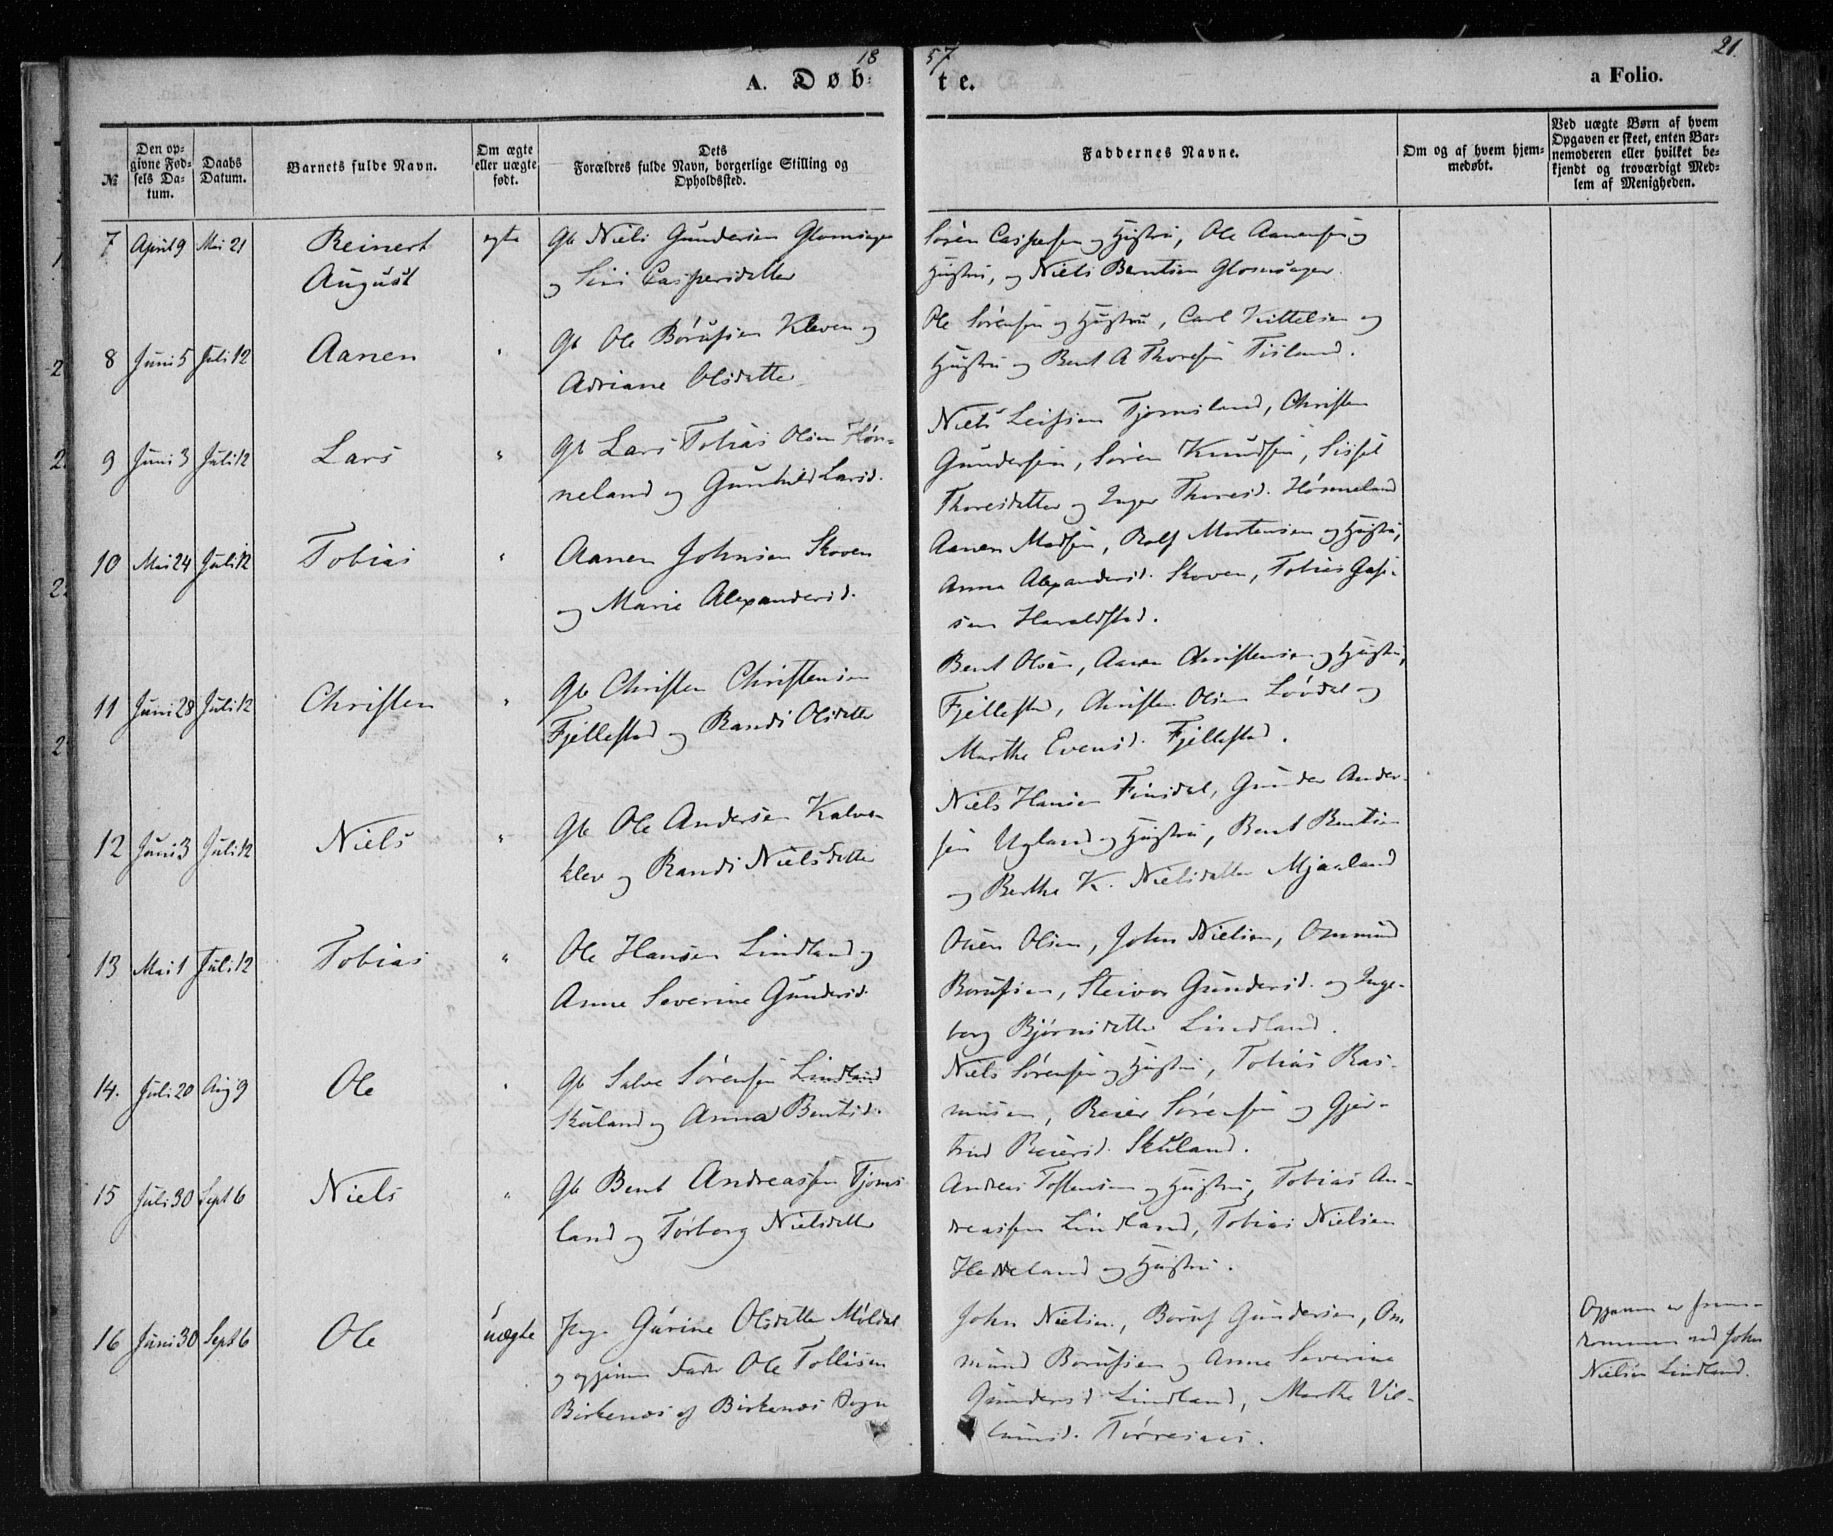 18 57 21.
A. Døb- te. a Folio.
№
Den opgivne Fødsels Datum.
Daabs Datum.
Barnets fulde Navn.
Om ægte eller uægte født.
Dets Forældres fulde Navn, borgerlige Stilling og Opholdssted.
Faddernes Navne.
Om og af hvem hjemmedøbt.
Ved uægte Børn af hvem Opgaven er skeet, enten Barnemoderen eller hvilket bekjendt og troværdigt Medlem af Menigheden.
7 April 9 Mai 21 Reinert ægte Gb Niels Gundersen Glomsager
August og Siri Caspersdatter
Søren Caspersen og Hustru, Ole Aanensen og
Hustru, og Niels Berntsen Glomsager.
8 Juni 5 Juli 12 Aanen " Gb Ole Børufsen Kleven og
Adriane Olsdatter
Ole Sørensen og Hustru, Carl Kittelsen og
Hustru og Bent A Thoresen Tisland.
9 Juni 3 Juli 12 Lars " Gb Lars Tobias Olsen Høn-
neland og Gunhild Larsd.
Niels Leifsen Tjomsland, Christen
Gundersen, Søren Knudsen, Sissel
Thoresdatter og Inger Thoresd. Hønneland
10 Mai 24 Juli 12 Tobias " Aanen Johnsen Skoven
og Marie Alexandersd.
Aanen Madsen, Rolf Mortensen og Hustru,
Anna Alexandersd. Skoven, Tobias
sen Haraldstad.
11 Juni 28 Juli 12 Christen " Gb Christen Christensen
Fjellestad og Randi Olsdatter
Bent Olsen, Aanen Christensen og Hustru,
Fjellestad, Christen Olsen Løvdal og
Marthe Evensd. Fjellestad.
12 Juni 3 Juli 12 Niels " Gb Ole Andersen Kalve-
klev og Randi Nielsdatter
Niels Hansen Finsdal, Gunder Ander-
sen Ugland og Hustru, Bent Bentsen
og Berthe K. Nielsdatter Mjaaland
13 Mai 1 Juli 12 Tobias " Ole Hansen Lindland og
Anne Severine Gundersd.
Osuen Olsen, John Nielsen, Ommund
Børufsen, Steivor Gundersd. og Inge-
borg Bjørnsdatter Lindland.
14. Juli 20 Aug 9 Ole " Gb Salve Sørensen Lindland
Skuland og Anna Bentsd.
Niels Sørensen og Hustru, Tobias Ras-
musen, Reier Sørensen og Gjer-
trud Reiersd. Skuland.
15 Juli 30 Sept 6 Niels " Gb Bent Andreassen Tjoms-
land og Torborg Nielsdatter
Andreas Tostensen og Hustru, Tobias An-
dreassen Lindland, Tobias Nielsen
Heddeland og Hustru.
16 Juni 30 Sept 6 Ole uægte Pige Gurine Olsdatter Møldal
og opgiven Fader Ole Tollisen
Birkenæs af Birkenæs Sogn
John Nielsen, Børuf Gundersen, Om
mund Børufsen og Anne Severine
Gundersd Lindland, Marthe Vil-
lumsd. Tørresnes.
Opgaven er frem-
kommen ved John
Nielsen Lindland.